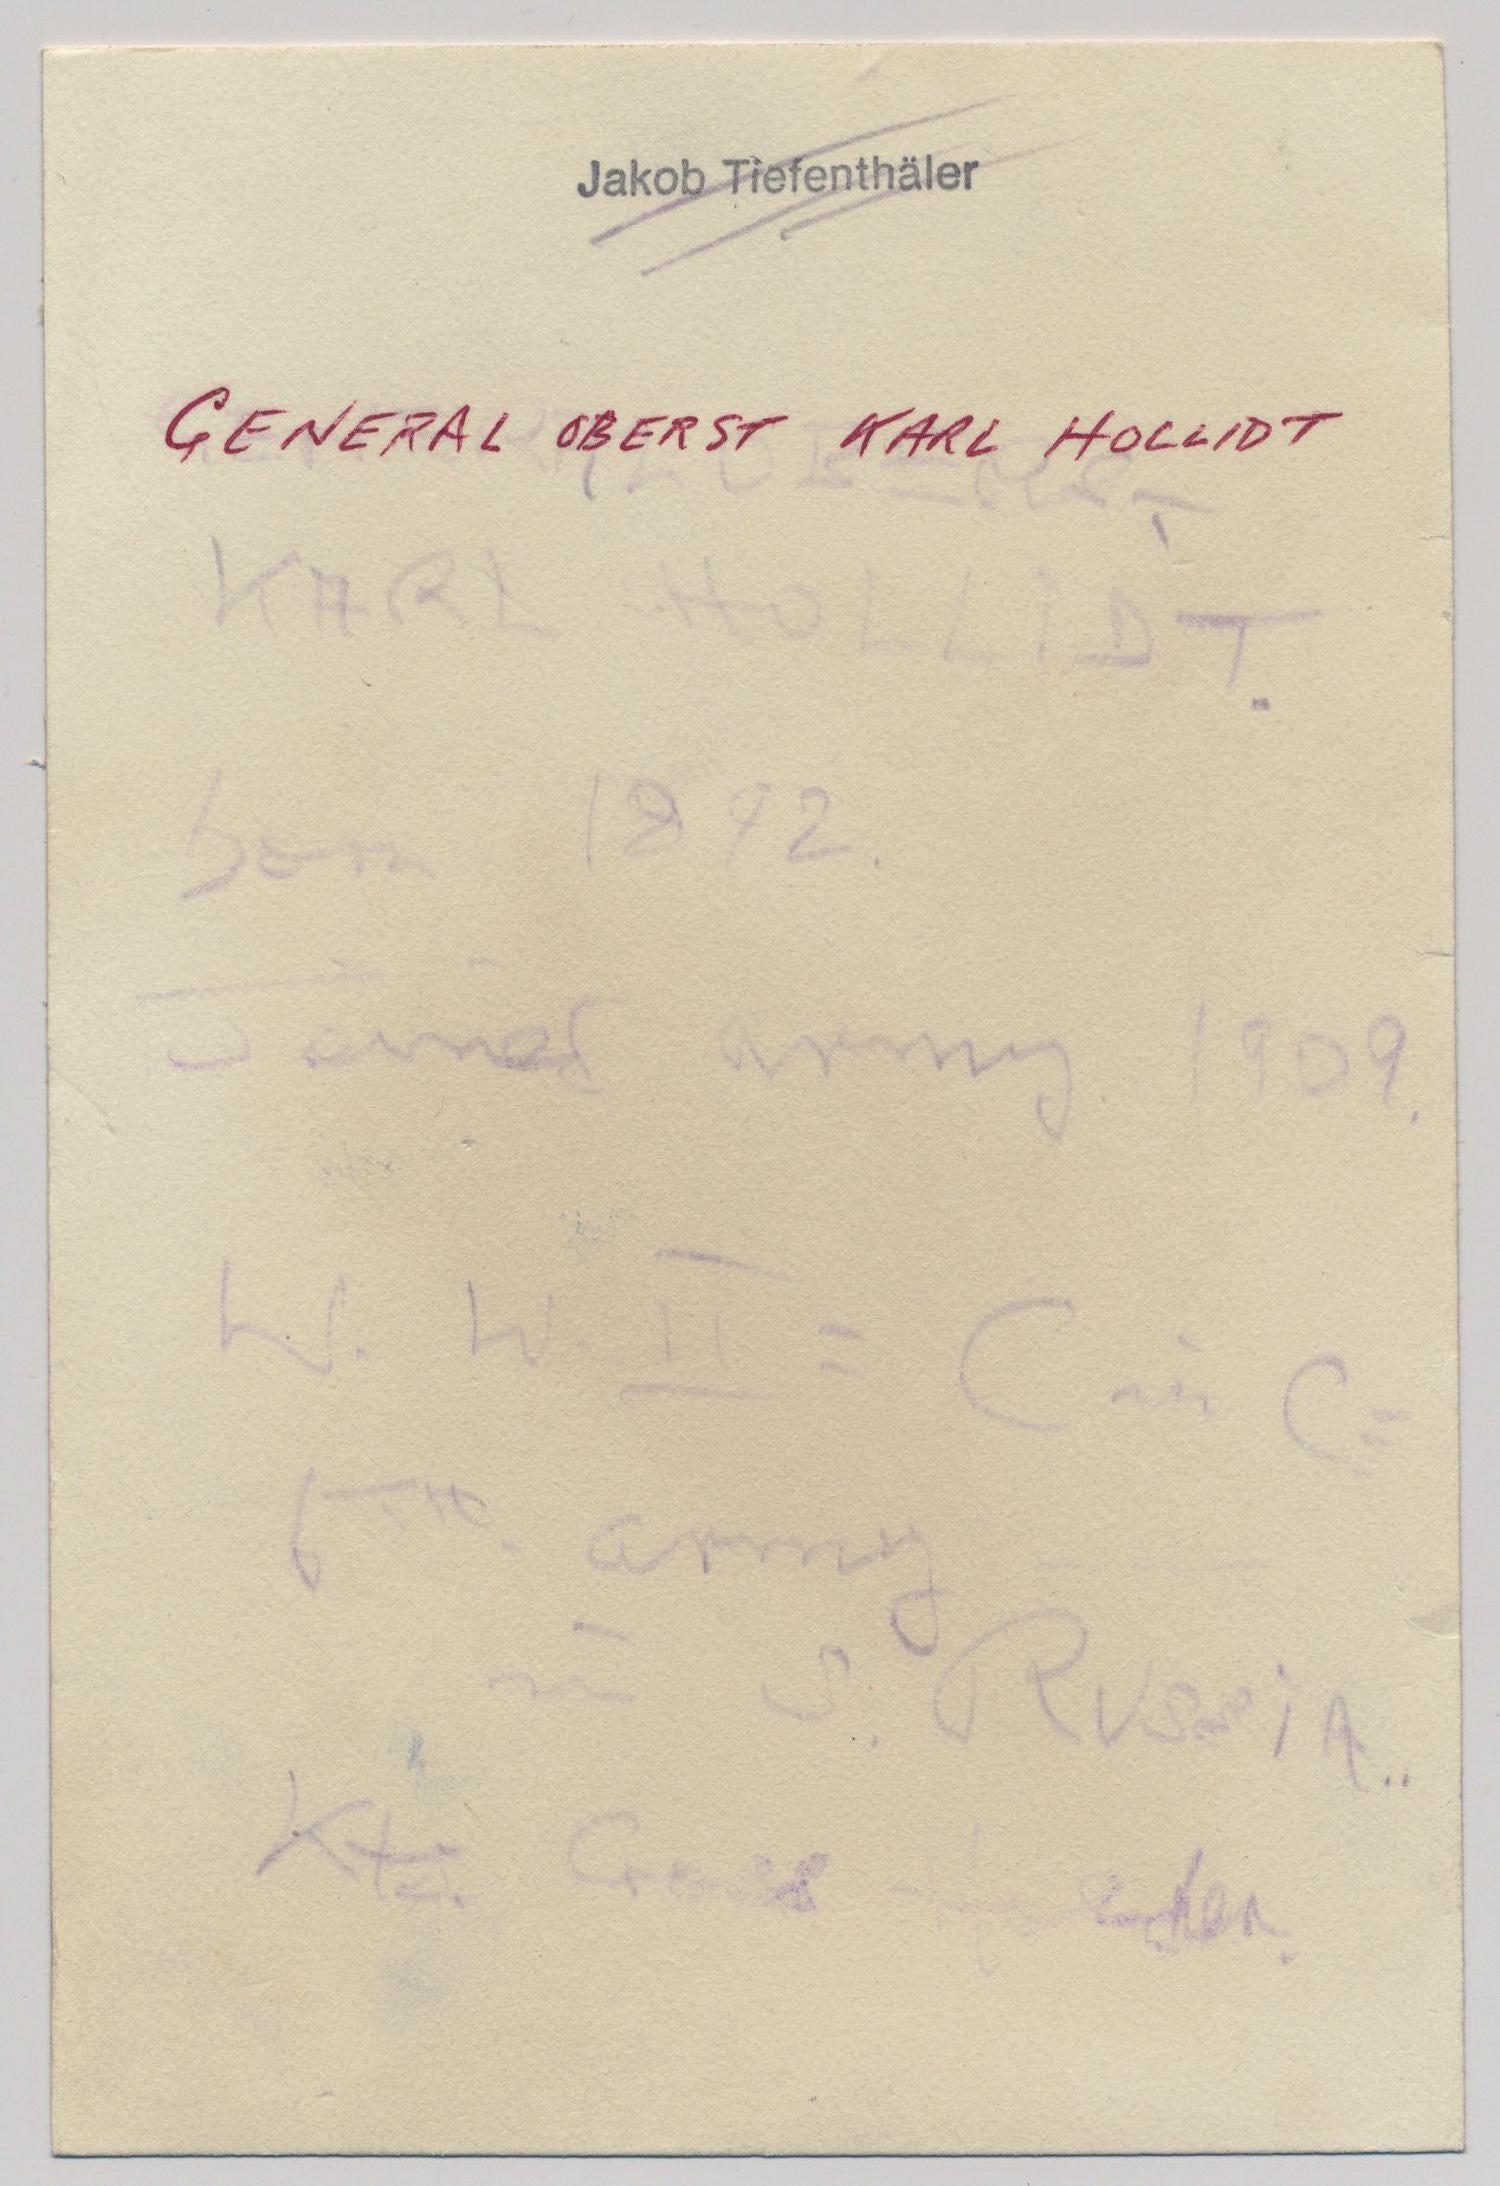 Jakob Tiefenthäler
GENERAL OBERST KARL HOLLIDT
KARL HOLLIDT.
born 1892.
Joined army 1909.
W. W II = C in C =
6TH. army
in S. RUSSIA..
Kts. Cross